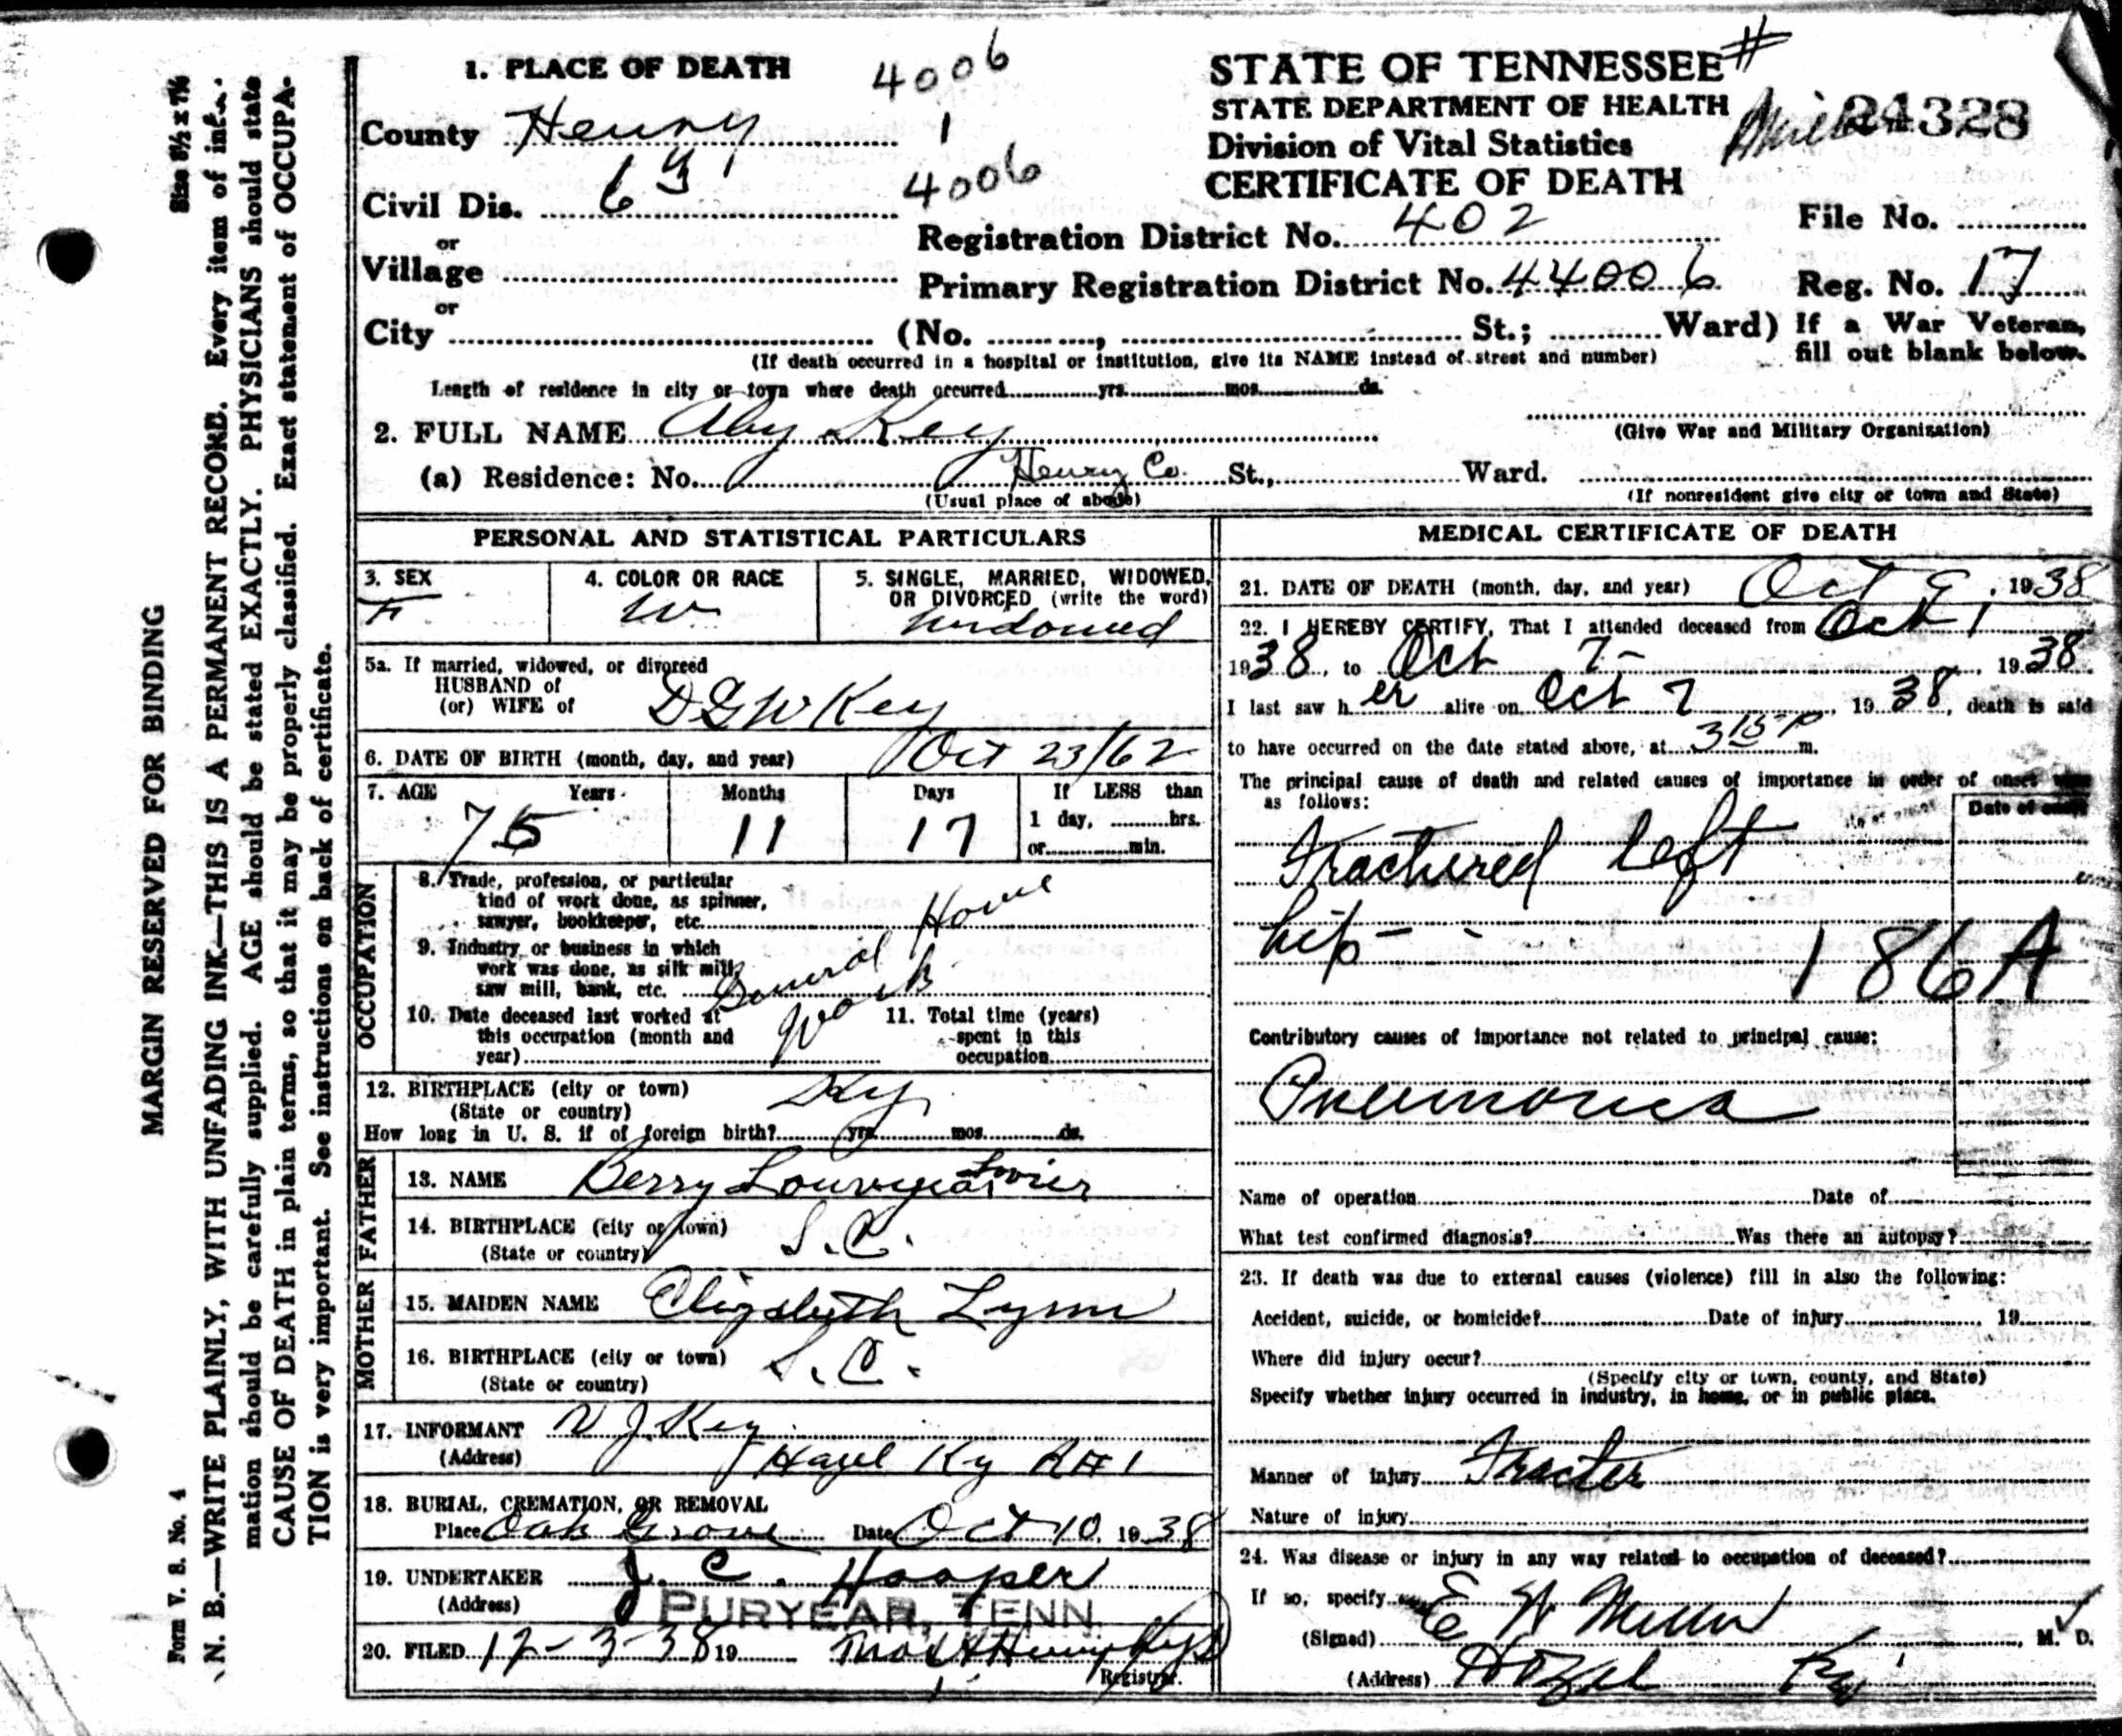 Size 8½ x 7¼
MARGIN RESERVED FOR BINDING
Form V. S. No. 4
N. B.—WRITE PLAINLY, WITH UNFADING INK—THIS IS A PERMANENT RECORD. Every item of infor-
mation should be carefully supplied. AGE should be stated EXACTLY. PHYSICIANS should state
CAUSE OF DEATH in plain terms, so that it may be properly classified. Exact statement of OCCUPA-
TION is very important. See instructions on back of certificate.
1. PLACE OF DEATH 4006
County Henry 1
Civil Dis. 6 4006
or
Village
or
City (No. , St.; Ward)
(If death occurred in a hospital or institution, give its NAME instead of street and number)
Length of residence in city or town where death occurred yrs. mos. ds.
STATE OF TENNESSEE #
STATE DEPARTMENT OF HEALTH
Division of Vital Statistics 24328
CERTIFICATE OF DEATH
Registration District No. 402
Primary Registration District No. 44006
File No.
Reg. No. 17
If a War Veteran,
fill out blank below.
(Give War and Military Organization)
2. FULL NAME Aby Key
(a) Residence: No. Henry Co. St., Ward.
(Usual place of abode)
(If nonresident give city or town and State)
PERSONAL AND STATISTICAL PARTICULARS
3. SEX
F
4. COLOR OR RACE
W
5. SINGLE, MARRIED, WIDOWED,
OR DIVORCED (write the word)
Widowed
5a. If married, widowed, or divorced
HUSBAND of
(or) WIFE of D G W Key
6. DATE OF BIRTH (month, day, and year) Oct 23/62
7. AGE Years Months Days If LESS than
75 11 17 1 day, hrs.
or min.
OCCUPATION
8. Trade, profession, or particular
kind of work done, as spinner,
sawyer, bookkeeper, etc. House
9. Industry or business in which
work was done, as silk mill,
saw mill, bank, etc. General Work
10. Date deceased last worked at
this occupation (month and
year)
11. Total time (years)
spent in this
occupation
12. BIRTHPLACE (city or town) Ky
(State or country)
How long in U. S. if of foreign birth? yrs. mos. ds.
FATHER
13. NAME Berry Lovier
14. BIRTHPLACE (city or town) S. C.
(State or country)
MOTHER
15. MAIDEN NAME Elizabeth Lynn
16. BIRTHPLACE (city or town) S. C.
(State or country)
17. INFORMANT V J Key
(Address) Hazel Ky R#1
18. BURIAL, CREMATION, OR REMOVAL
Place Oak Grove Date Oct 10, 1938
19. UNDERTAKER J. C. Hooper
(Address) PURYEAR, TENN.
20. FILED 12-3-38 19
Registrar.
MEDICAL CERTIFICATE OF DEATH
21. DATE OF DEATH (month, day, and year) Oct 9, 1938
22. I HEREBY CERTIFY, That I attended deceased from Oct 1
1938, to Oct 7-, 1938
I last saw her alive on Oct 7, 1938, death is said
to have occurred on the date stated above, at 3 15 P m.
The principal cause of death and related causes of importance in order of onset were
as follows:
Date of onset
Fractured left
hip
186A
Contributory causes of importance not related to principal cause:
Pneumonia
Name of operation Date of
What test confirmed diagnosis? Was there an autopsy?
23. If death was due to external causes (violence) fill in also the following:
Accident, suicide, or homicide? Date of injury , 19
Where did injury occur?
(Specify city or town, county, and State)
Specify whether injury occurred in industry, in home, or in public place.
Manner of injury
Nature of injury
24. Was disease or injury in any way related to occupation of deceased?
If so, specify
(Signed) E W Miller, M. D.
(Address) Hazel Ky